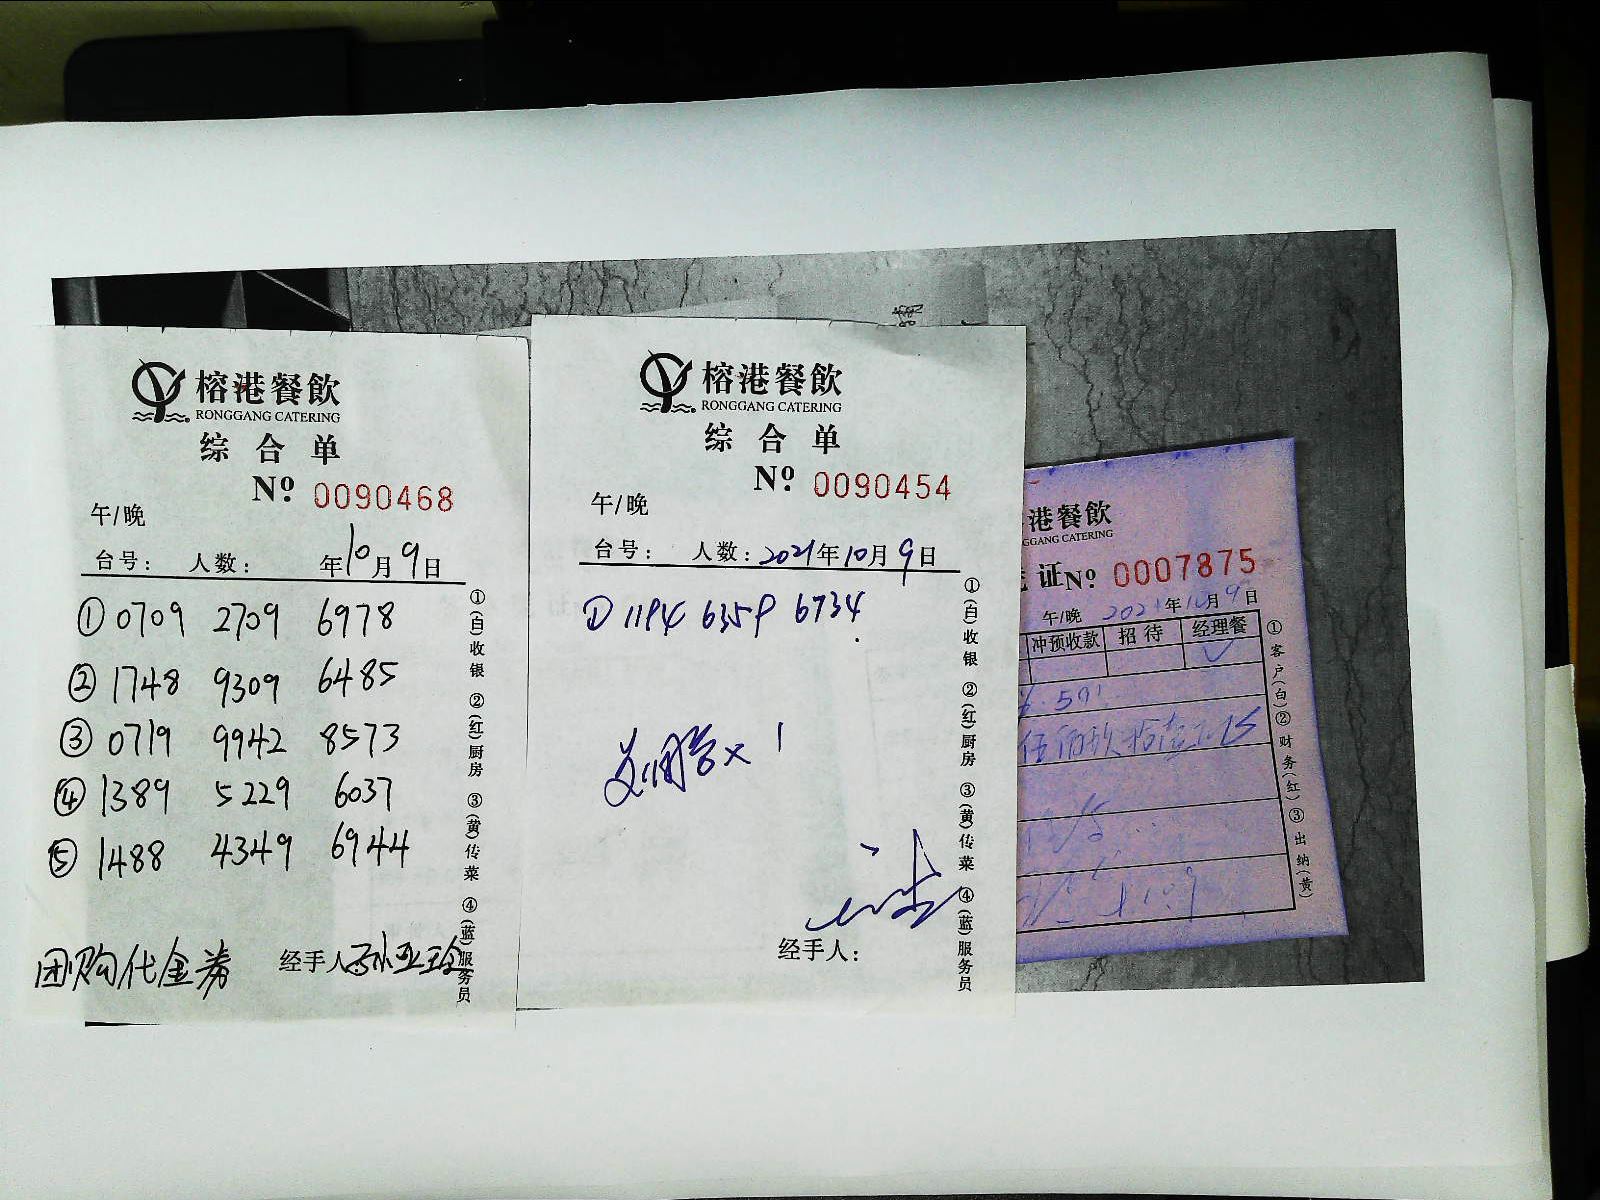 榕港餐飲
RONGGANG CATERING
综合单
Nº 0090468
午/晚
台号： 人数： 年10月9日
①0709 2709 6978
②1748 9309 6485
③0719 9942 8573
④1389 5229 6037
⑤1488 4349 6944
团购代金券 经手人孙亚玲
①(白)收银 ②(红)厨房 ③(黄)传菜 ④(蓝)服务员
榕港餐飲
RONGGANG CATERING
综合单
Nº 0090454
午/晚
台号： 人数：2021年10月9日
① 1194 6359 6734
经手人：
①(白)收银 ②(红)厨房 ③(黄)传菜 ④(蓝)服务员
港餐飲
GGANG CATERING
证Nº 0007875
午/晚 2021年10月9日
冲预收款 招待 经理餐
①客户(白)②财务(红)③出纳(黄)